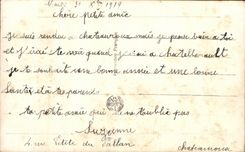 31 Xbre 1919
Chère petite amie
Je suis rendue à chateauroux mais je pense bien à toi
et j'irai te voir quand j'irai à chatellerault
je te souhaite une bonne année et une bonne
Santé à tes parents
ta petite amie qui ne t'oublie pas
Suzanne
4 rue Petite du Vallan
Chateauroux